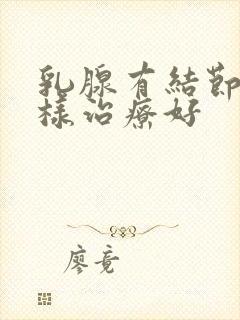 乳腺有結節
樣治療好
廖竟